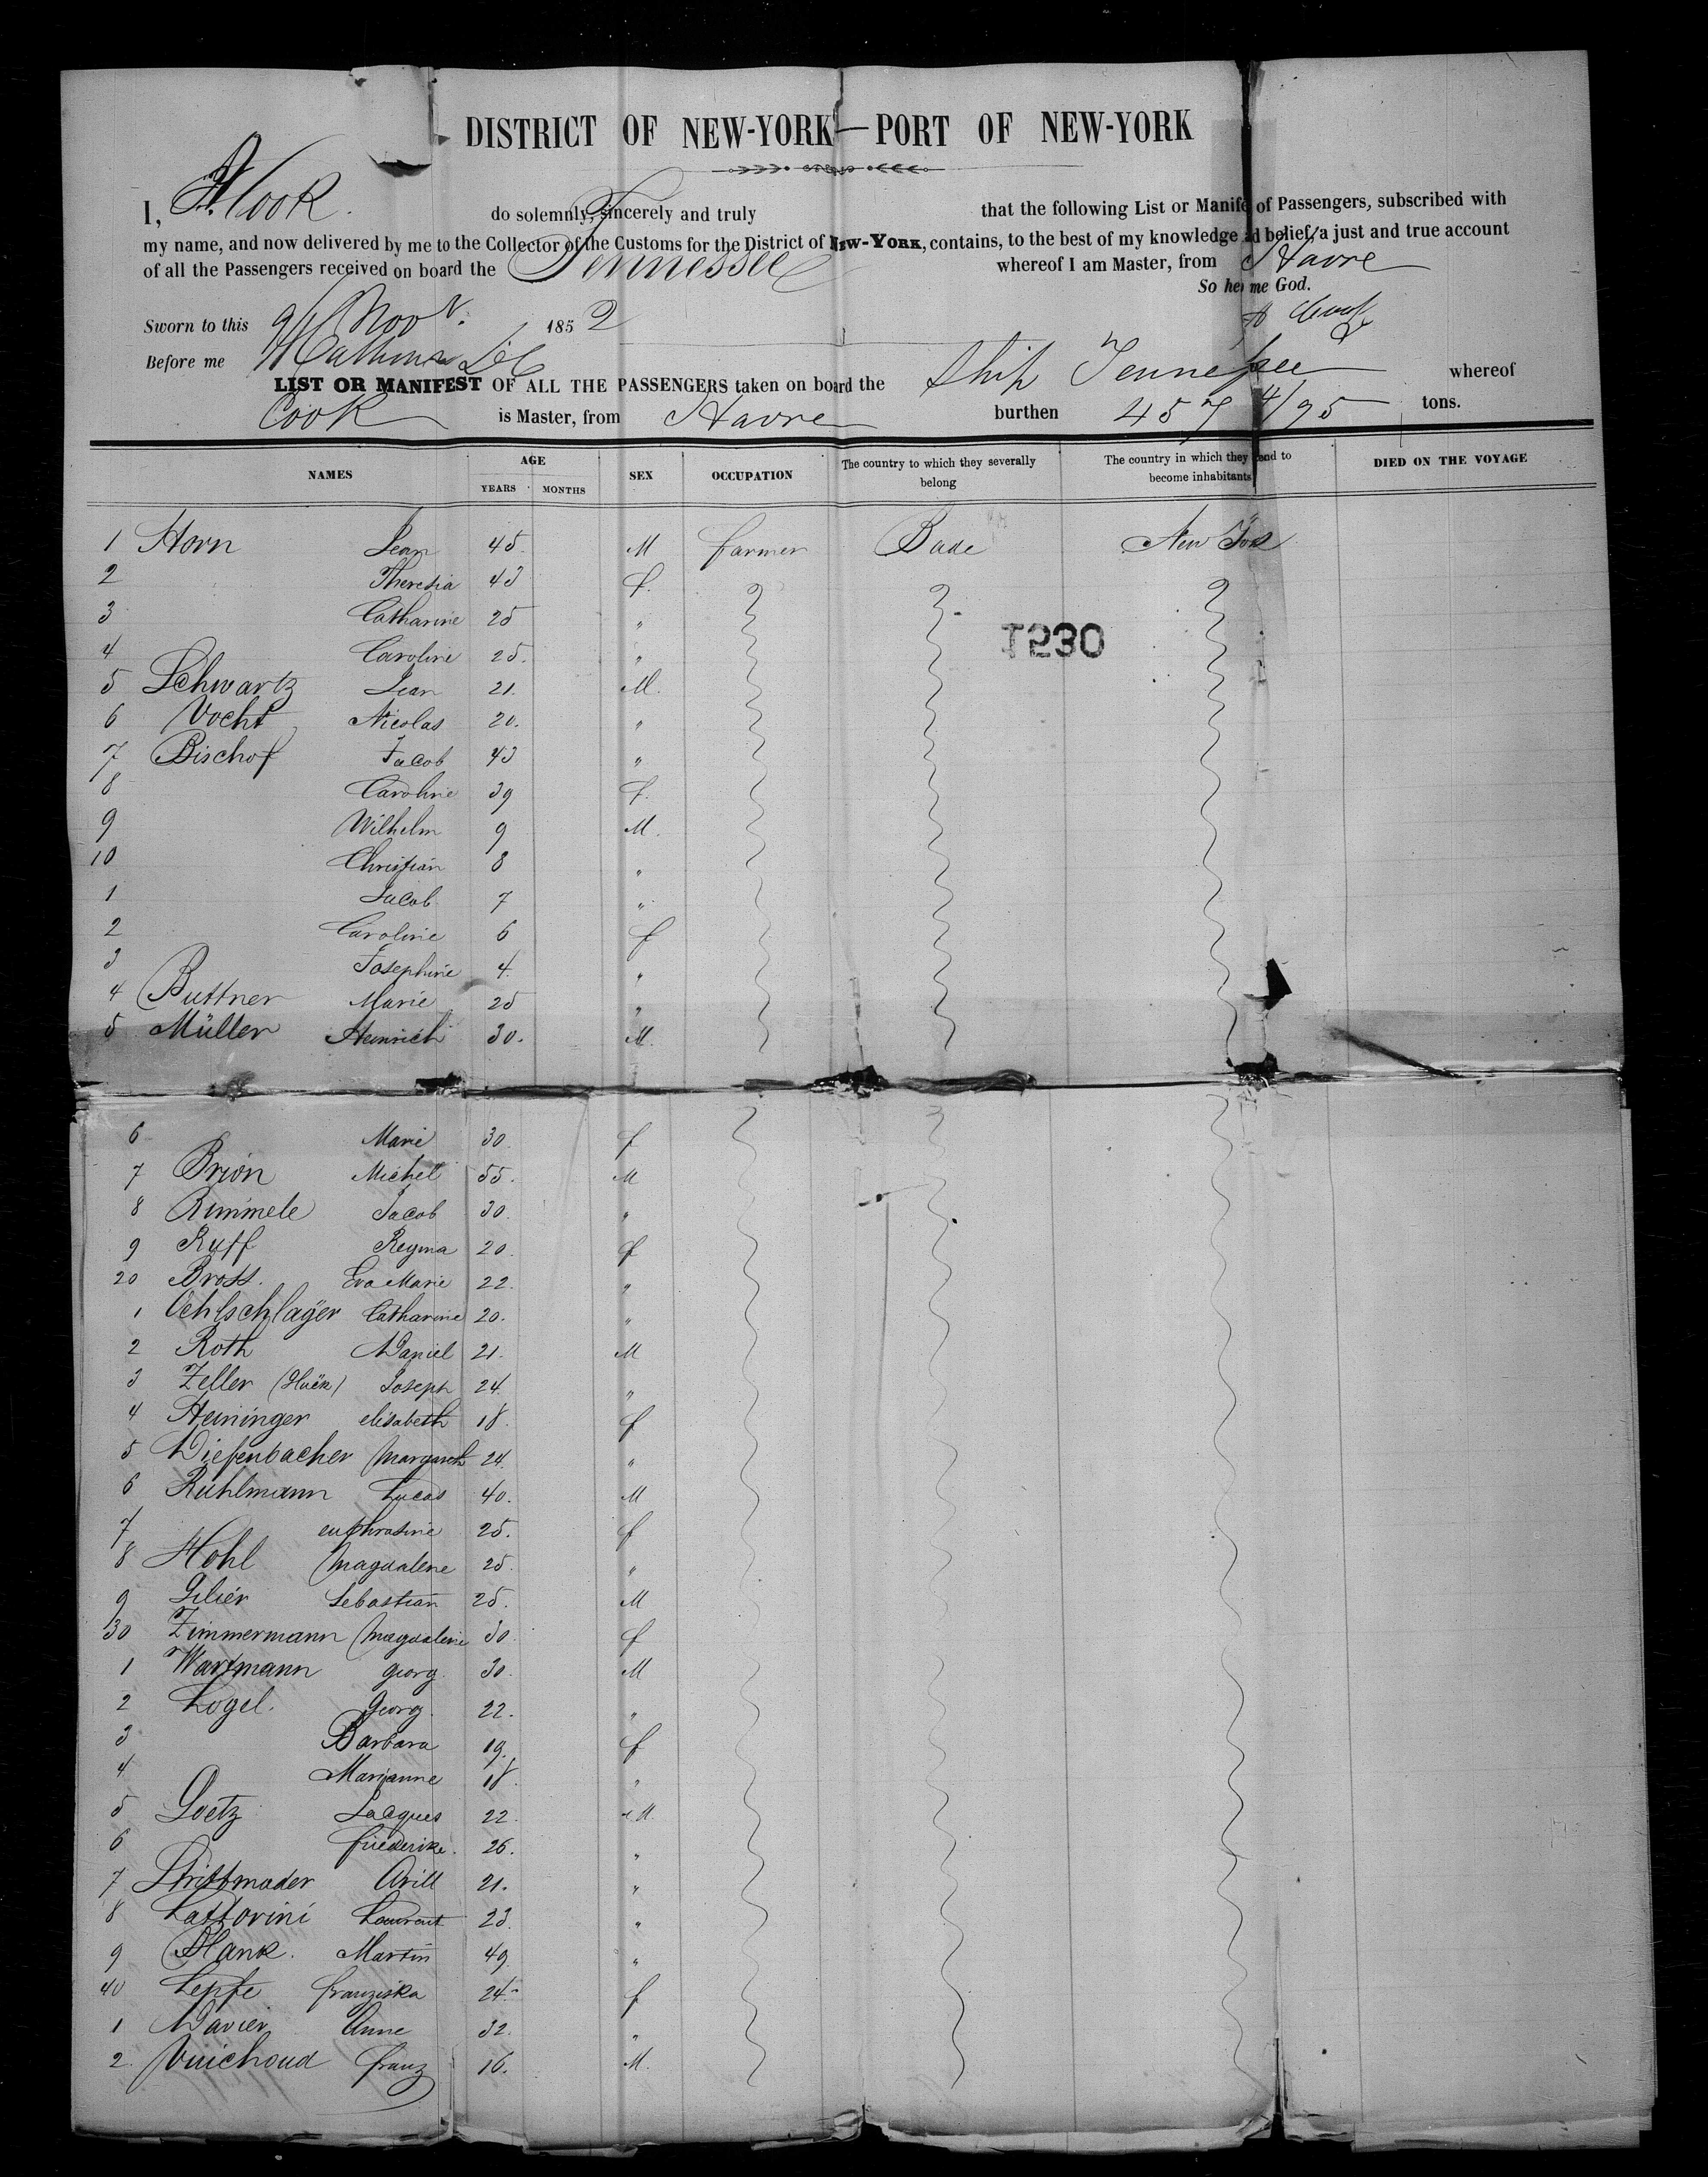 DISTRICT OF NEW-YORK—PORT OF NEW-YORK
I, Cook do solemnly, sincerely and truly that the following List or Manife of Passengers, subscribed with
my name, and now delivered by me to the Collector of the Customs for the District of New-York, contains, to the best of my knowledge ad belief, a just and true account
of all the Passengers received on board the Tennessee whereof I am Master, from Havre
So he me God.
Sworn to this 9 Nov 1852 Cook
Before me
LIST OR MANIFEST OF ALL THE PASSENGERS taken on board the Ship Tennessee whereof
Cook is Master, from Havre burthen 457 4/95 tons.
NAMES AGE YEARS MONTHS SEX OCCUPATION The country to which they severally belong The country in which they end to become inhabitants DIED ON THE VOYAGE
1 Horn Jean 45. M farmer Bade New York
2 Theresia 43 f.
3 Catharine 25 "
4 Caroline 25. "
T230
5 Schwartz Jean 21. M.
6 Vocht Nicolas 20. "
7 Bischof Jacob 43 "
8 Caroline 39 f.
9 Wilhelm 9 M.
10 Christian 8 "
1 Jacob 7 "
2 Caroline 6 f
3 Josephine 4. "
4 Buttner Marie 25 "
5 Müller Heinrich 30. M.
6 Marie 30. f
7 Brion Michel 55. M
8 Rimmele Jacob 30. "
9 Ruff Regina 20. f
20 Bross. Eva Marie 22. "
1 Oehlschlager Catharine 20. "
2 Roth Daniel 21. M
3 Zeller Joseph 24. "
4 Heininger elisabeth 18. f
5 Diefenbacher Margareth 24. "
6 Ruhlmann Lucas 40. M
7 euphrosine 25. f
8 Hohl Magdalene 25. "
9 Gilier Sebastian 25. M
30 Zimmermann Magdalene 30. f
1 Wartmann georg 30. M
2 Logel. Georg. 22. "
3 Barbara 19. f
4 Marianne 18. "
5 Goetz Jacques 22. M
6 friederike. 26. "
7 Strittmader 21. "
8 Lattorini Laurent 23. "
9 Blank. Martin 49. "
40 Lepfe franziska 24. f
1 Davier Anne 32. "
2. Vuichoud franz 16. M.